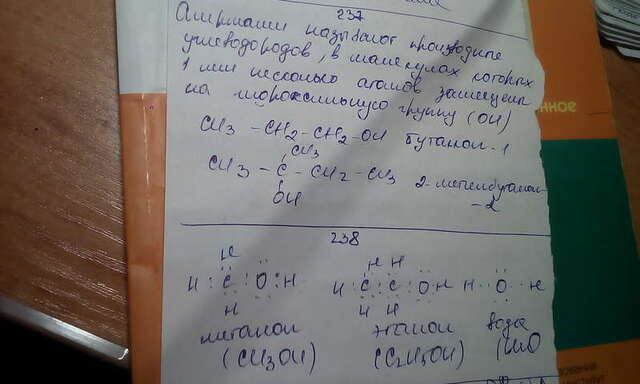 237
Спиртами называют производные
углеводородов, в молекулах которых
1 или несколько атомов замещены
на гидроксильную группу (OH)
CH3 - CH2 - CH2 - OH бутанол-1
CH3
CH3 - C - CH2 - CH3 2-метилбутанол-
OH
-2
238
H
H : C : O : H
H
метанол
(CH3OH)
H H
H : C : C : O : H
H H
этанол
(C2H5OH)
H : O : H
вода
(H2O
нное